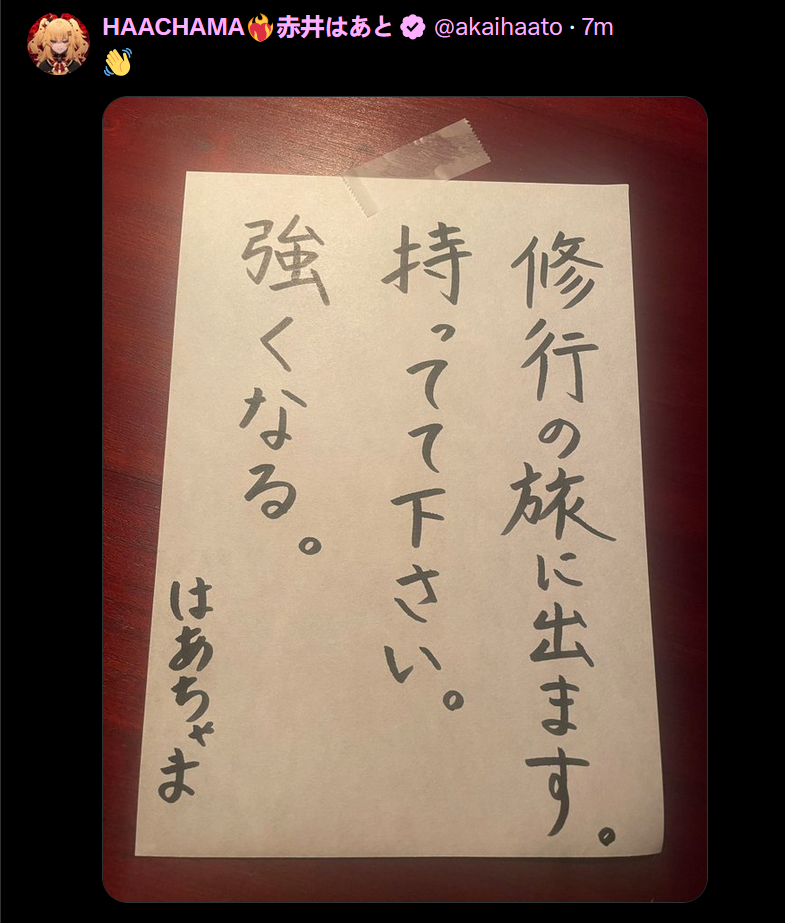 HAACHAMA❤️‍🔥赤井はあと @akaihaato · 7m
👋
修行の旅に出ます。
持ってて下さい。
強くなる。
はあちゃま